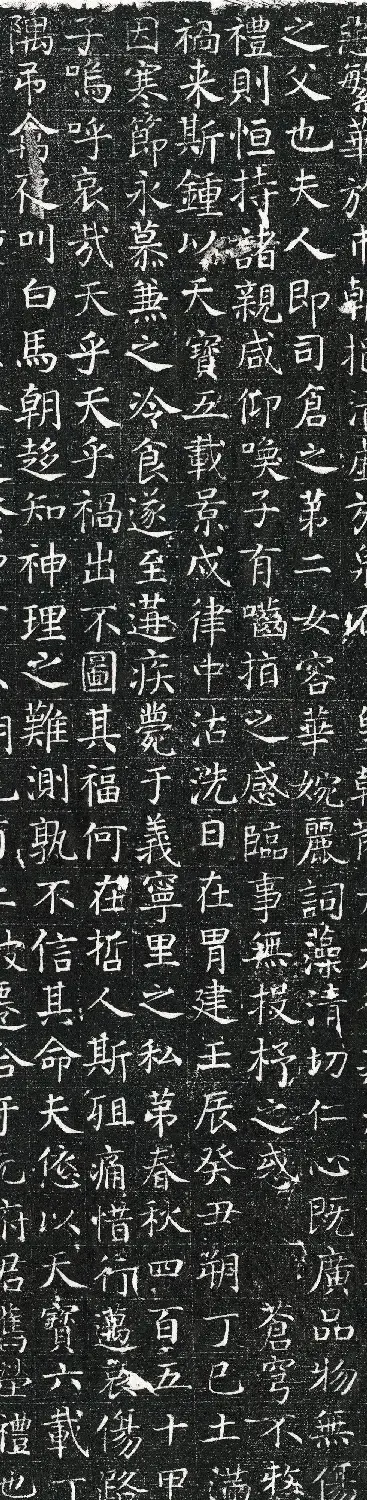 之父也夫人即司倉之第二女容華婉麗詞藻清切仁心既廣品物無傷
禮則恒持諸親咸仰喚子有嚙指之感臨事無投杼之惑蒼穹不憖
禍来斯鍾以天寶五載景戌律中沽洗日在胃建壬辰癸丑朔丁巳土滿
因寒節永慕兼之冷食遂至遘疾薨于義寧里之私第春秋四百五十甲
子嗚呼哀哉天乎天乎禍出不圖其福何在哲人斯殂痛惜行邁哀傷路
隅吊禽夜叫白馬朝趍知神理之難測孰不信其命夫偯以天寶六載丁